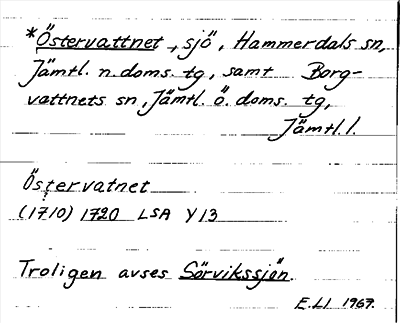 *Östervattnet, sjö, Hammerdals sn,
Jämtl. n. doms. tg, samt Borg-
vattnets sn, Jämtl. ö. doms. tg,
Jämtl. l.
Östervatnet
(1710) 1720 LSA Y13
Troligen avses Sörvikssjön.
E.Ll 1967.